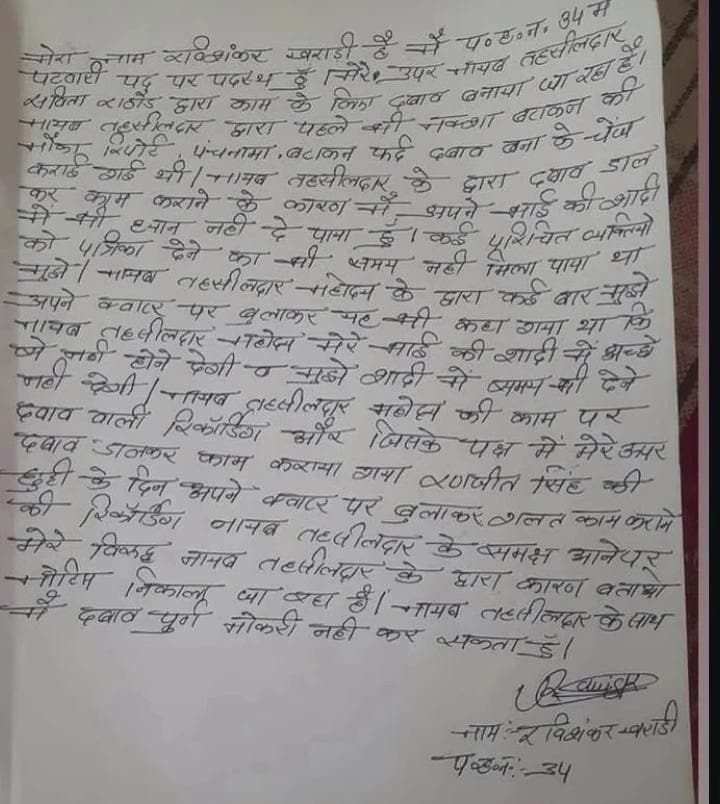 मेरा नाम रविशंकर खराडी है मैं प०ह०न० 34 में
पटवारी पद पर पदस्थ हूँ। मेरे उपर नायब तहसीलदार
सविता राठौड द्वारा काम के लिए दबाव बनाया जा रहा है।
नायब तहसीलदार द्वारा पहले भी नक्शा बटाकन की
मौका रिपोर्ट, पंचनामा, बटाकन फर्द दबाव बना के चेंज
कराई गई थी। नायब तहसीलदार के द्वारा दबाव डाल
कर काम कराने के कारण मैं अपने भाई की शादी
में भी ध्यान नही दे पाया हूँ। कई परिचित व्यक्तियो
को पत्रिका देने का भी समय नही मिला पाया था
मुझे। नायब तहसीलदार महोदय के द्वारा कई बार मुझे
अपने क्वाटर पर बुलाकर यह भी कहा गया था कि
नायब तहसीलदार महोदय मेरे भाई की शादी में अच्छे
से नही होने देगी व मुझे शादी में समय भी देने
नही देगी। नायब तहसीलदार महोदय की काम पर
दबाव वाली रिकॉर्डिंग और जिसके पक्ष में मेरे उपर
दबाव डालकर काम कराया गया रणजीत सिंह की
छुट्टी के दिन अपने क्वाटर पर बुलाकर गलत काम कराने
की रिकॉर्डिंग नायब तहसीलदार के समक्ष आने पर
मेरे विरुद्ध नायब तहसीलदार के द्वारा कारण बताओ
नोटिस निकाला जा रहा है। नायब तहसीलदार के साथ
मैं दबाव पुर्ण नौकरी नही कर सकता हूँ।
नाम:- रविशंकर खराडी
प०ह०न०:- 34